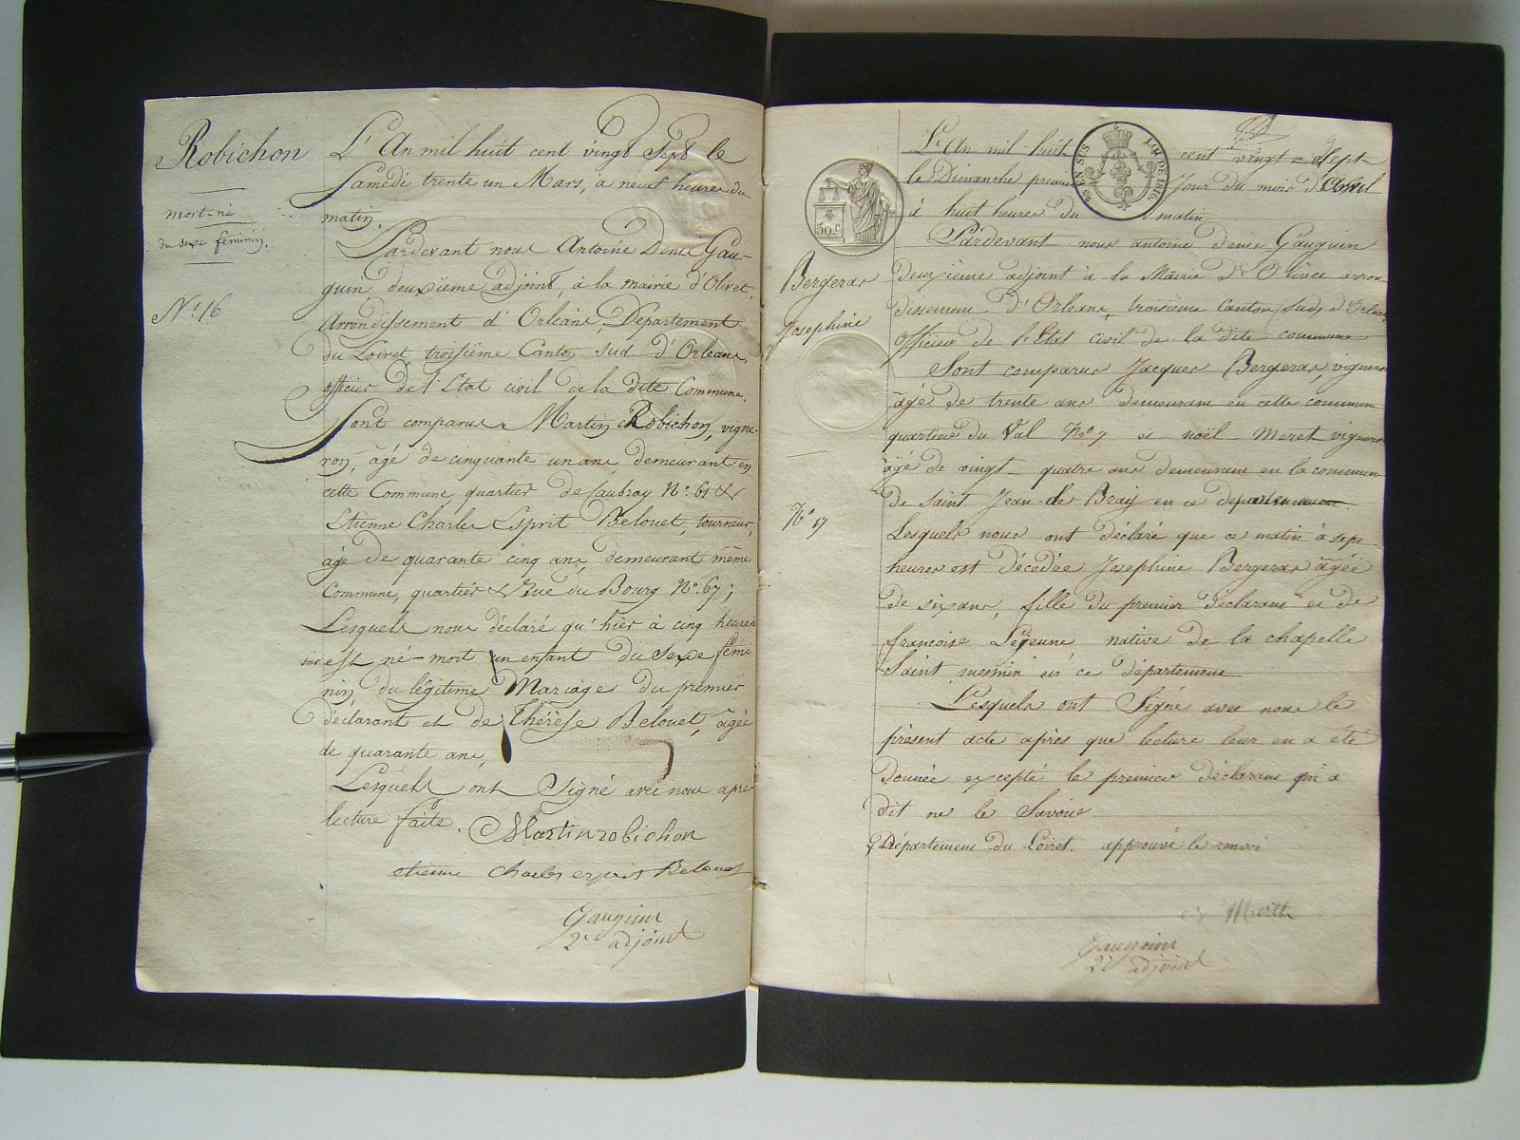 Robichon
mort-né
du sexe féminin.
N.° 16
L'An mil huit cent vingt Sept le
Samedi trente un Mars, à neuf heures du
matin,
Pardevant nous Antoine Denis Gau-
guin, deuxième adjoint, à la mairie d'Olivet,
Arrondissement d'Orléans, Département
du Loiret, troisième Canton sud d'Orléans,
officier de l'Etat civil de la dite Commune.
Sont comparus Martin Robichon, vigne-
ron, âgé de cinquante un ans, demeurant en
cette Commune, quartier de Caubray N.° 61 &
Etienne Charles Esprit Belouet, tourneur,
âgé de quarante cinq ans, demeurant même
Commune, quartier & Rue du Bourg N.° 67;
Lesquels nous déclaré qu'hier à cinq heures
est né-mort un enfant du Sexe fémi
nin du légitime Mariage du premier
déclarant et de Thérèse Belouet, âgée
de quarante ans,
Lesquels ont Signé avec nous après
lecture faite.
Martin robichon
etienne Charles esprit Belouet
Gauguin
2e adjoint
50 C
EN SUS
LOI DE 1816
Bergeras
Josephine
N.° 17
L'An mil-huit cent vingt-Sept
le Dimanche premier Jour du mois d'Avril
à huit heures du matin
Pardevant nous antoine denis Gauguin
deuxième adjoint à la Mairie d'Olivet arron
dissement d'Orléans, troisième Canton Sud d'Orléans
officier de l'Etat civil de la dite commune
Sont comparus Jacques Bergeras, vigneron
âgé de trente ans demeurant en cette commune
quartier du Val N.° 7 et noël Meret vigneron
âgé de vingt-quatre ans demeurant en la commune
de Saint Jean de Bray en ce département
Lesquels nous ont déclaré que ce matin à sept
heures est décédée Josephine Bergeras âgée
de six ans, fille du premier déclarant et de
francoise Lejeune, native de la chapelle
Saint mesmin en ce département
Lesquels ont Signé avec nous le
présent acte après que lecture leur en a été
donnée excepté le premier déclarant qui a
dit ne le Savoir
Département du Loiret. approuvé le renvoi
Gauguin
2e adjoint